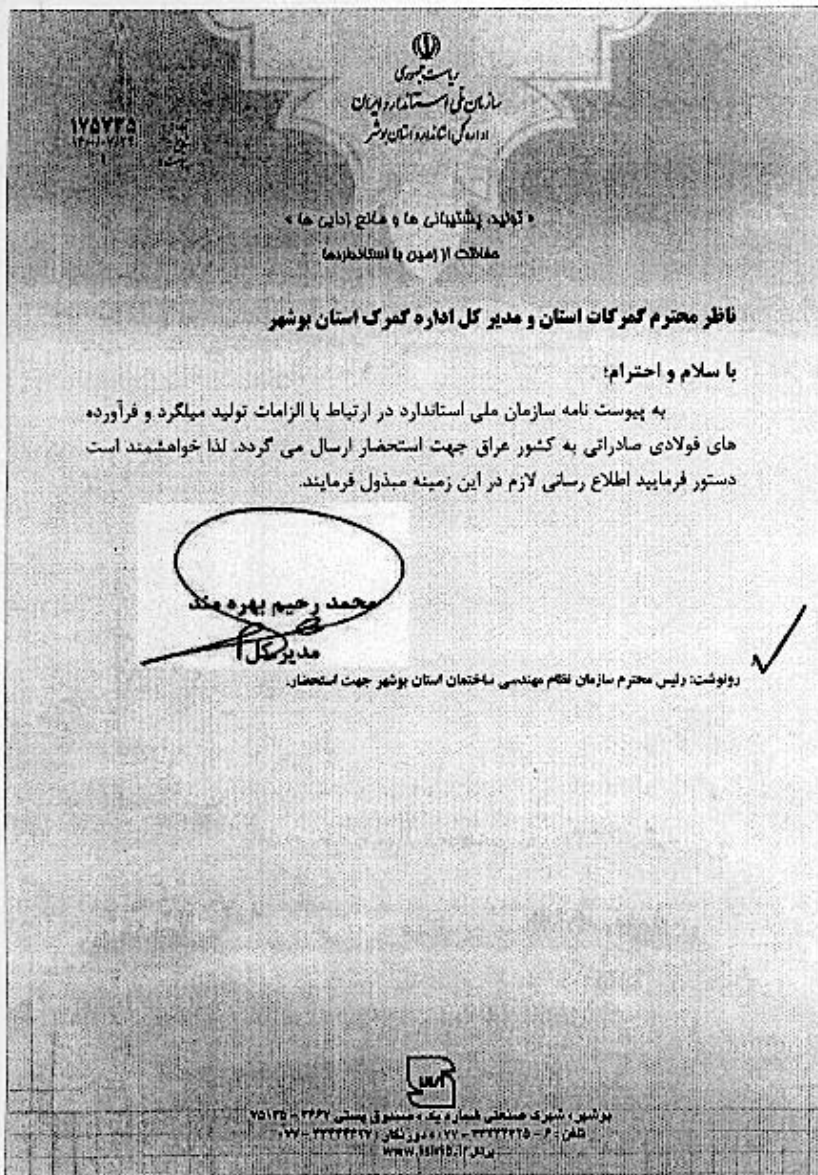 ریاست جمهوری
سازمان ملی استاندارد ایران
اداره کل استاندارد استان بوشهر
۱۷۵۷۳۵
« تولید، پشتیبانی ها و مانع زدایی ها »
حفاظت از زمین با استانداردها
ناظر محترم گمرکات استان و مدیر کل اداره گمرک استان بوشهر
با سلام و احترام؛
به پیوست نامه سازمان ملی استاندارد در ارتباط با الزامات تولید میلگرد و فرآورده
های فولادی صادراتی به کشور عراق جهت استحضار ارسال می گردد. لذا خواهشمند است
دستور فرمایید اطلاع رسانی لازم در این زمینه مبذول فرمایند.
محمد رحیم بهره مند
مدیر کل
رونوشت: رئیس محترم سازمان نظام مهندسی ساختمان استان بوشهر جهت استحضار.
بوشهر، شهرک صنعتی شماره یک، صندوق پستی